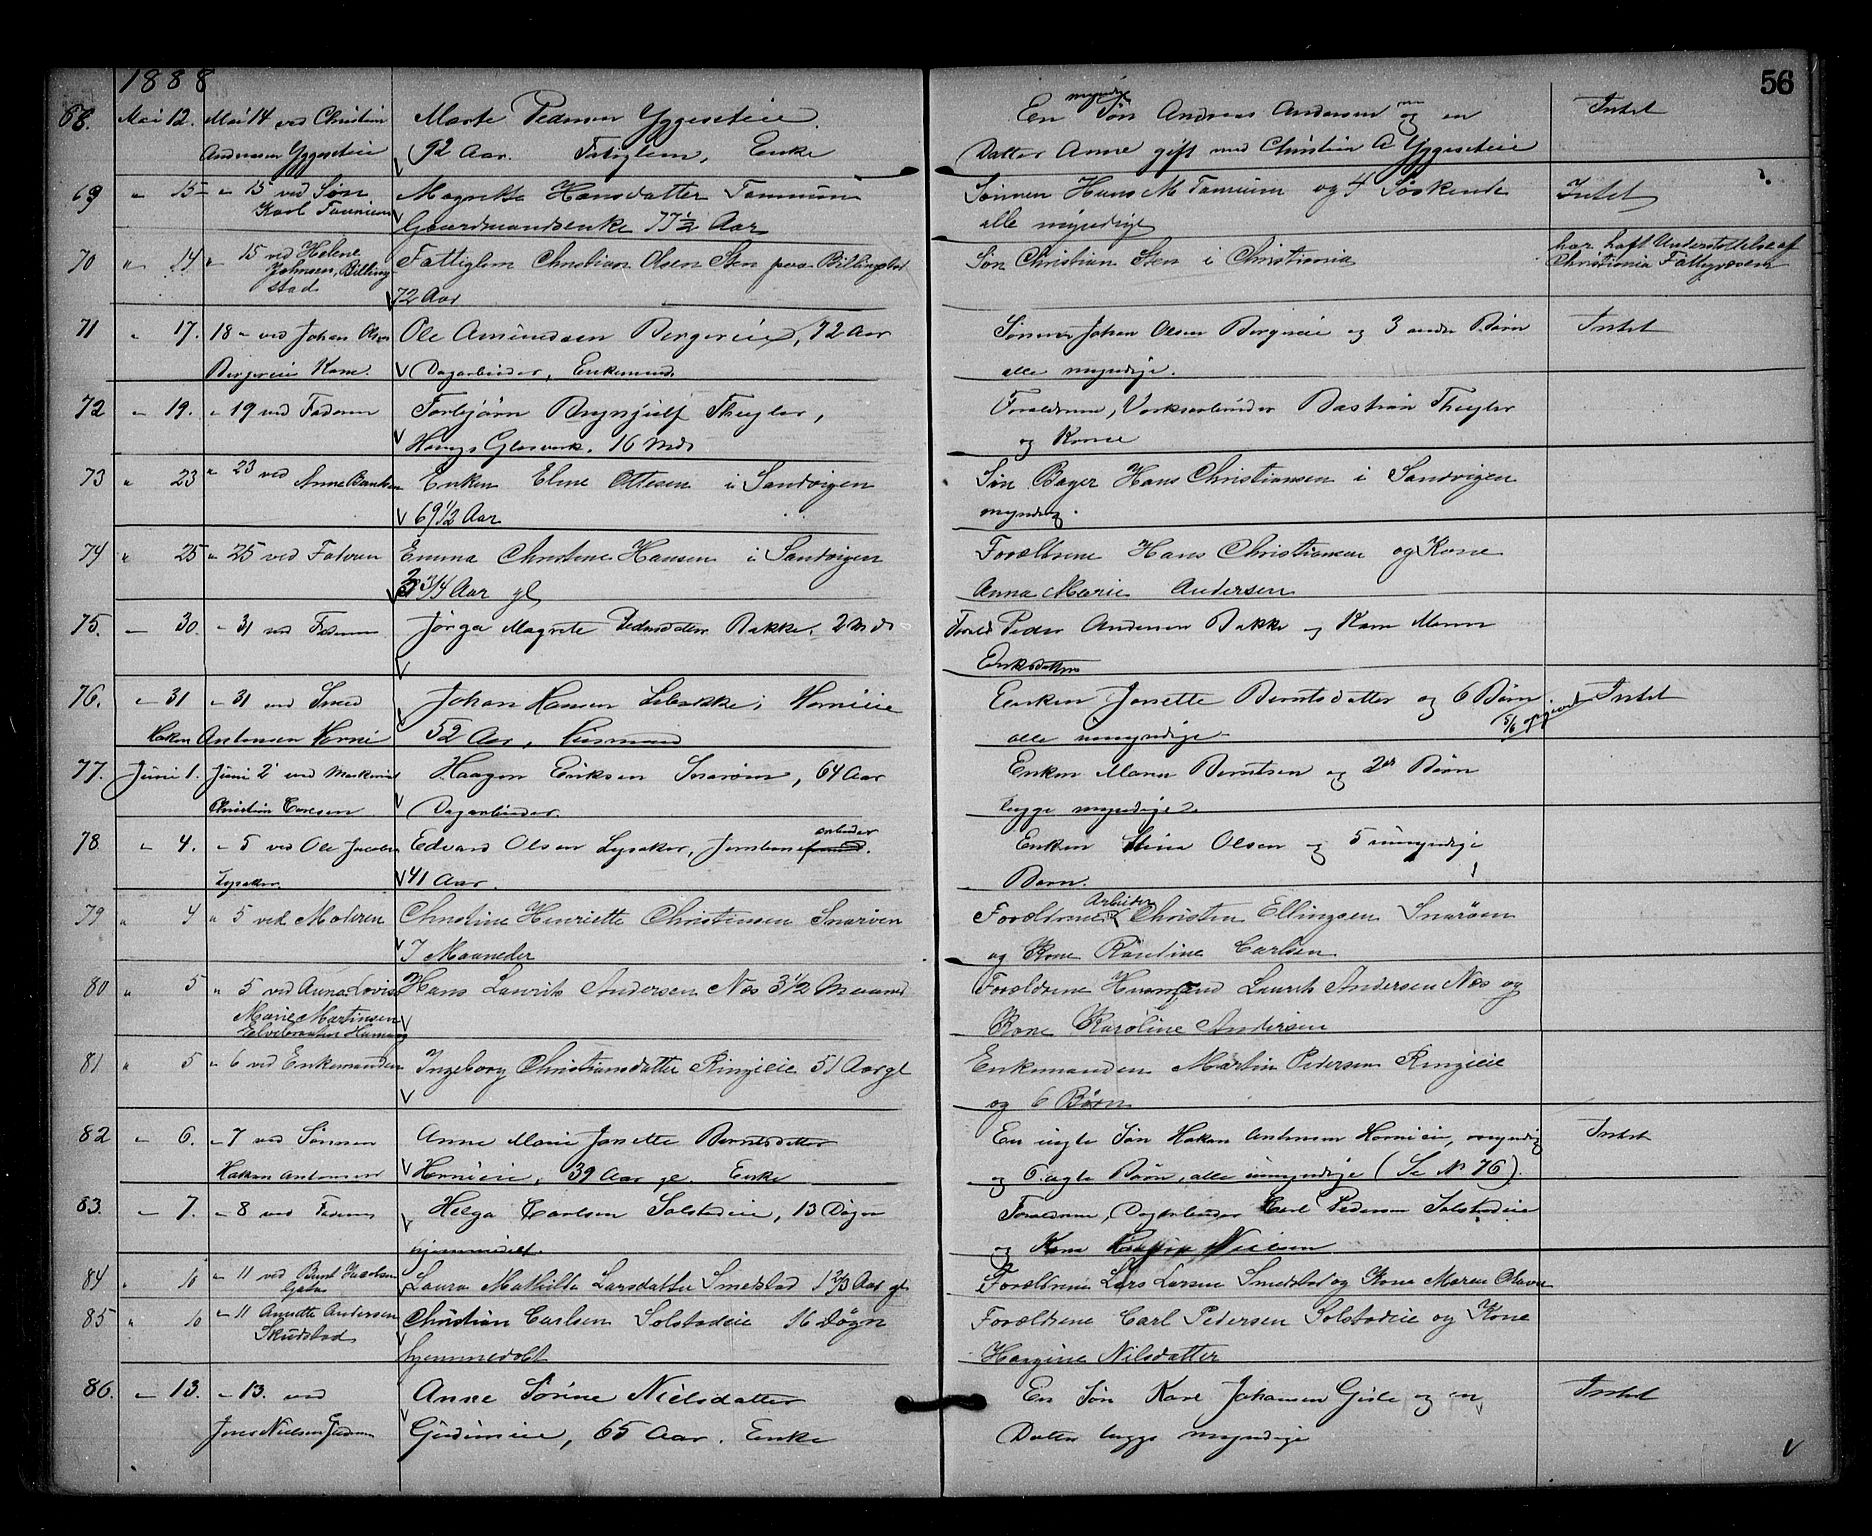 1888
56
68. Mai 12. Mai 14 ved Christian Marte Pedersen Yggeseteie. En myndig Søn Andreas Andersen og en Intet
Andersen Yggeseteie 92 Aar. Fatiglem, Enke Datter Anne gift med Christian A Yggeseteie
69 " 15 " 15 ved Søn Magrethe Hansdatter Sønnen Hans M og 4 Søskende Intet
Karl Gaardmandsenke 77 1/2 Aar alle myndige
70 " 14 " 15 ved Helene Fattiglem Christian Olsen Sten paa Billingstad Søn Christian Sten i Christiania har haft Understøttelse af
Johnsen, Billing Christiania Fattigvæsen
stad 72 Aar
71 " 17. 18 " ved Johan Olsen Ole Amundsen Bergereie, 72 Aar Sønnen Johan Olsen Bergereie og 3 andre Børn Intet
Bergereie Kone. Dagarbeider, Enkemand. alle myndige.
72 " 19. " 19 ved Faderen Torbjørn Brynjulf Thegler, Forældrene, Verksarbeider Bastian Thegler
Høvigs Glasverk. 16 Mdr og Kone
73 " 23 " 23 ved Anne Enken Eline Ottesen i Sandvigen Søn Bager Hans Christiansen i Sandvigen
69 1/2 Aar myndig.
74 " 25 " 25 ved Faderen Emma Christine Hansen i Sandvigen Forældrene Hans Christiansen og Kone
3/4 Aar gl Anna Marie Andersen
75. " 30. " 31 ved Faderen Jørga Magrete Pedersdatter Bakke. 2 Mdr Foræld Peder Andersen Bakke og Kone Maren
Eriksdatter
76. " 31 " 31 ved Smed Johan Hansen i Hornieie Enken Janette Berntsdatter og 6 Børn Intet
Hakon Antonsen Horni 52 Aar, Husmand alle umyndige. 5/6 opgivet
77. Juni 1. Juni 2 ved Haagen Eriksen Snarøen, 64 Aar Enken Maren Berntsen og 2de Børn
Christian Carlsen Dagarbeider. begge myndige.
78 " 4. " 5 ved Ole Jacobsen Edvard Olsen Lysaker, Jernbanearbeider. Enken Stina Olsen og 5 umyndige
Lysaker. 41 Aar. Børn.
79 " 4 " 5 ved Moderen Christine Henriette Christensen Snarøen Forældrene Arbeider Christen Ellingsen Snarøen
7 Maaneder og Kone Karoline Carlsen
80 " 5 " 5 ved Anna Lovise Hans Laurits Andersen Nes 3 1/2 Maaned Forældrene Husmand Laurits Andersen Nes og
Marie Martinsen Kone Karoline Andersen
81 " 5 " 6 ved Enkemanden Ingeborg Christiansdatter Ringieie 51 Aar gl Enkemanden Martin Pedersen Ringieie
og 6 Børn
82 " 6. " 7 ved Sønnen Anne Marie Janette Berntsdatter En uegte Søn Hakon Antonsen Hornieie, myndig Intet
Hakon Antonsen Hornieie, 39 Aar gl. Enke og 6 ægte Børn, alle umyndige (Se No 76).
83. " 7. " 8 ved Faderen Helga Carlsen Solstadeie, 13 Døgn Forældrene, Dagarbeider Carl Pedersen Solstadeie
hjemmedøbt. og Kone Nielsen
84 " 10 " 11 ved Bernt Jacobsen Laura Mathilde Larsdatter Smedstad 1 2/3 Aar gl Forældrene Lars Larsen Smedstad og Kone Maren Olava
85 " 10 " 11 Anette Andersen Christian Carlsen Solstadeie 16 Døgn Forældrene Carl Pedersen Solstadeie og Kone
Skudstad hjemmedøbt Hargine Nilsdatter
86. " 13. " 13. ved Anne Sørine Nielsdatter En Søn Karl Johansen Gisle og en Intet
Jens Nielsen Gudim Gudimeie, 65 Aar. Enke Datter begge myndige